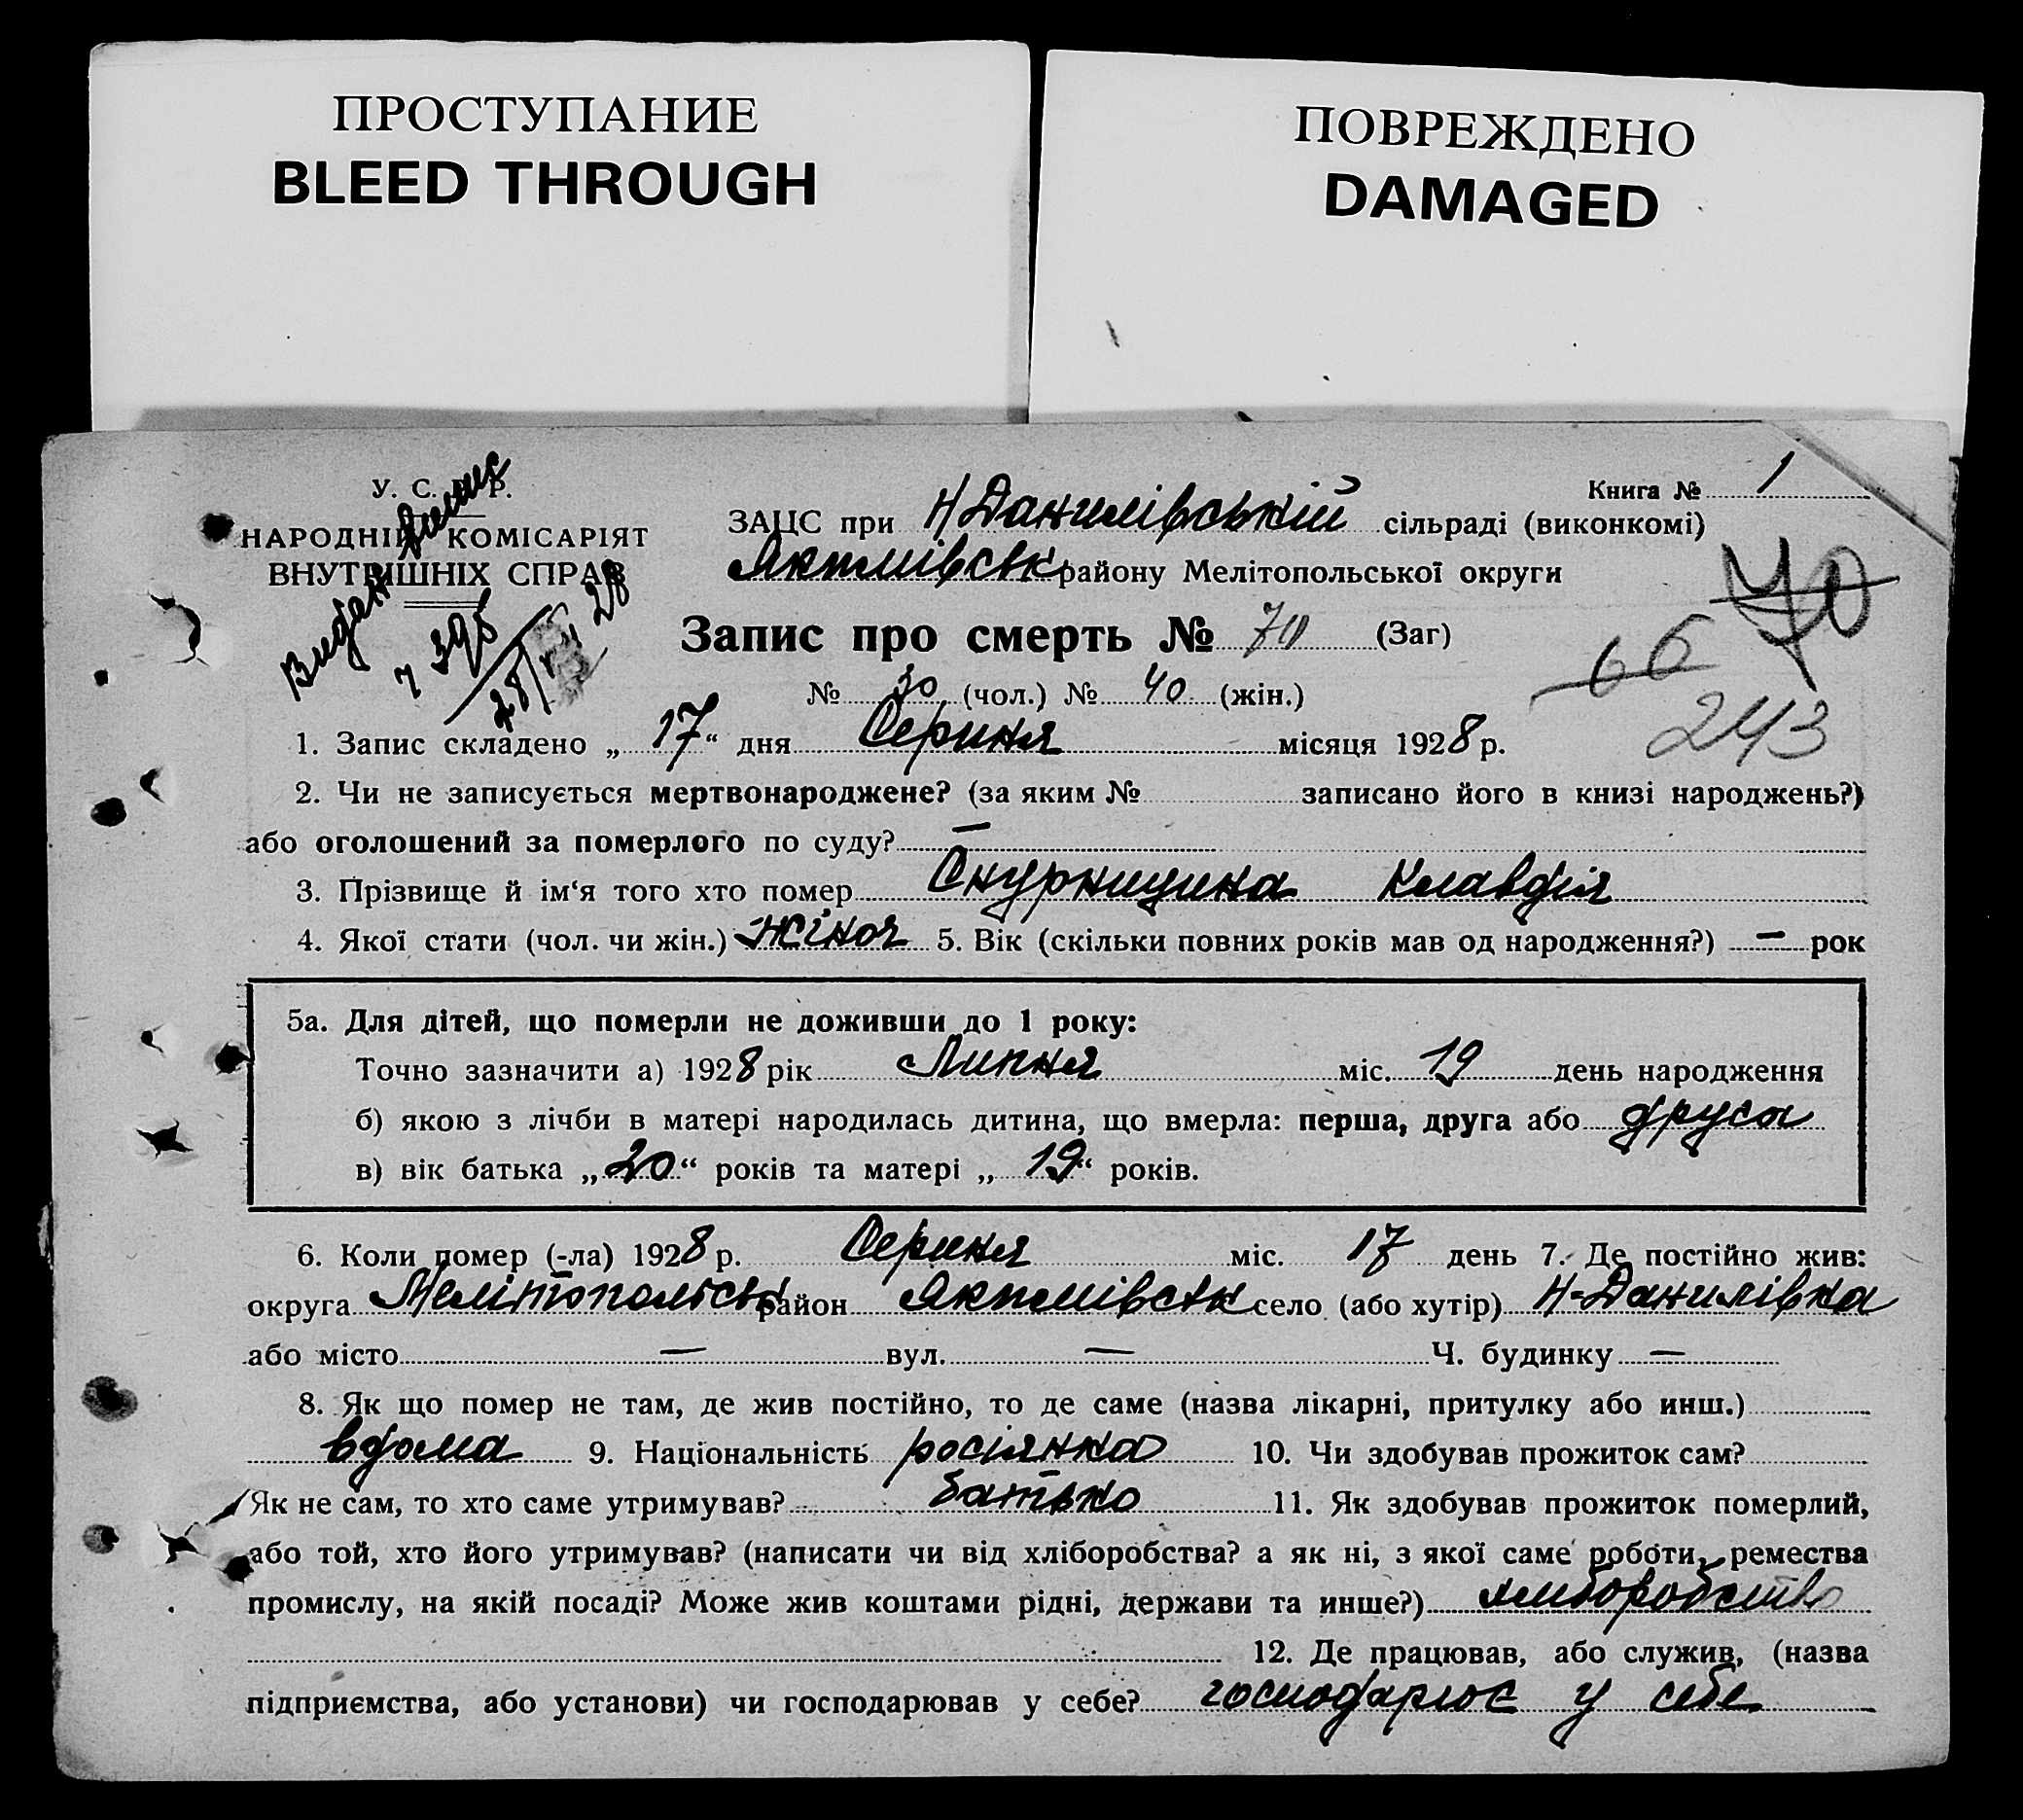 ПРОСТУПАНИЕ
BLEED THROUGH
ПОВРЕЖДЕНО
DAMAGED
У. С. Р. Р.
НАРОДНІЙ КОМІСАРІЯТ
ВНУТРІШНІХ СПРАВ
Видан
28
Книга № 1
ЗАЦС при Н Данилівській сільраді (виконкомі)
Якимівськ району Мелітопольської округи
70
66
243
Запис про смерть № 70 (Заг)
№ 30 (чол.) № 40 (жін.)
1. Запис складено „ 17 “ дня Серпня місяця 1928 р.
2. Чи не записується мертвонароджене? (за яким № записано його в книзі народжень?)
або оголошений за померлого по суду? —
3. Прізвище й ім‘я того хто помер Снурницина Клавдія
4. Якої стати (чол. чи жін.) жіноч 5. Вік (скільки повних років мав од народження?) — рок
5а. Для дітей, що померли не доживши до 1 року:
Точно зазначити а) 1928 рік Липня міс. 19 день народження
б) якою з лічби в матері народилась дитина, що вмерла: перша, друга або друга
в) вік батька „ 20 “ років та матері „ 19 “ років.
6. Коли помер (-ла) 1928 р. Серпня міс. 17 день 7. Де постійно жив:
округа Мелітопольськ район Якимівськ село (або хутір) Н-Данилівка
або місто — вул. — Ч. будинку —
8. Як що помер не там, де жив постійно, то де саме (назва лікарні, притулку або инш.)
вдома 9. Національність росіянка 10. Чи здобував прожиток сам?
Як не сам, то хто саме утримував? батько 11. Як здобував прожиток померлий,
або той, хто його утримував? (написати чи від хліборобства? а як ні, з якої саме роботи, ремества
промислу, на якій посаді? Може жив коштами рідні, держави та инше?) хліборобство
12. Де працював, або служив, (назва
підприємства, або установи) чи господарював у себе? господарює у себе